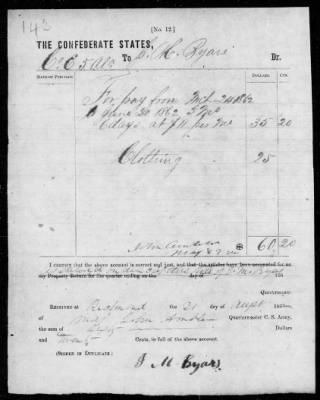 14
[No. 12.]
THE CONFEDERATE STATES,
Co E 5 Ala To J. M. Byars Dr.
DATE OF PURCHASE. DOLLARS. CTS.
For pay from Mch 24 1862
to June 30 1862 3 Mos
6 days at $11 per Mo 35 20
Clothing 25
60 20
I CERTIFY that the above account is correct and just; that the articles have been accounted for on
my Property Return for the quarter ending on the
QUARTERMASTER.
RECEIVED at Richmond the 21 day of Augt 186
of Maj John Ambler Quartermaster C. S. Army,
the sum of Sixty Dollars
and Twenty Cents, in full of the above account.
(SIGNED IN DUPLICATE.)
J M Byars